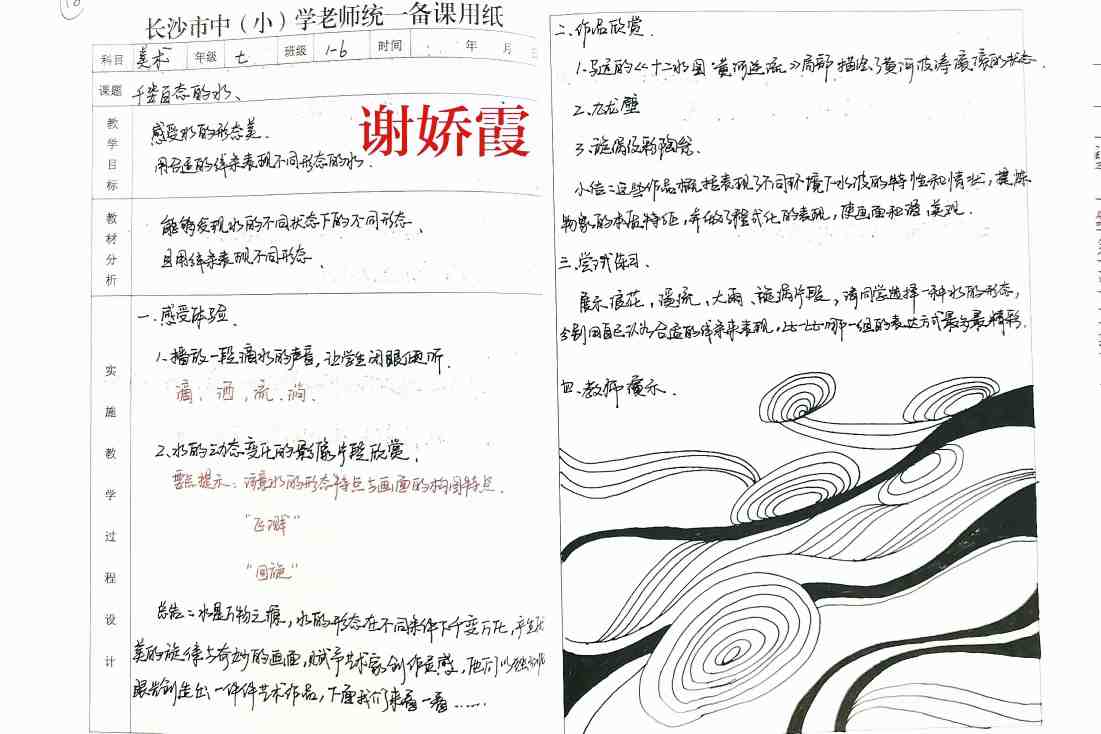 长沙市中（小）学老师统一备课用纸
科目 美术 年级 七 班级 1-6 时间 年 月
课题 千姿百态的水、
谢娇霞
教学目标
感受水的形态美.
用合适的线条表现不同形态的水.
教材分析
能够发现水的不同状态下的不同形态、
且用线条表现不同形态.
实施教学过程设计
一.感受体验.
1、播放一段滴水的声音，让学生闭眼倾听.
滴、洒、流、淌、
2、水的动态变化的影像片段欣赏：
要点提示：注意水的形态特点与画面的构图特点.
“飞溅”
“回旋”
总结：水是万物之源，水的形态在不同条件下千变万化，产生
美的旋律与奇妙的画面，赋予艺术家创作灵感，他们以独
眼光创造出一件件艺术作品，下面我们来看一看……
二、作品欣赏.
1、马远的《十二水图·黄河逆流》局部描绘了黄河波涛滚滚的状态.
2、九龙壁
3、旋涡纹彩陶瓮.
小结：这些作品概括表现了不同环境下水波的特性和情状，提炼
物象的本质特征，并做了程式化的表现，使画面和谐、美观.
三、尝试练习.
展示浪花，湍流，大雨、旋涡片段，请同学选择一种水的形态，
分别用自己认为合适的线条来表现，比一比哪一组的表达方式最与最精彩.
四、教师演示.